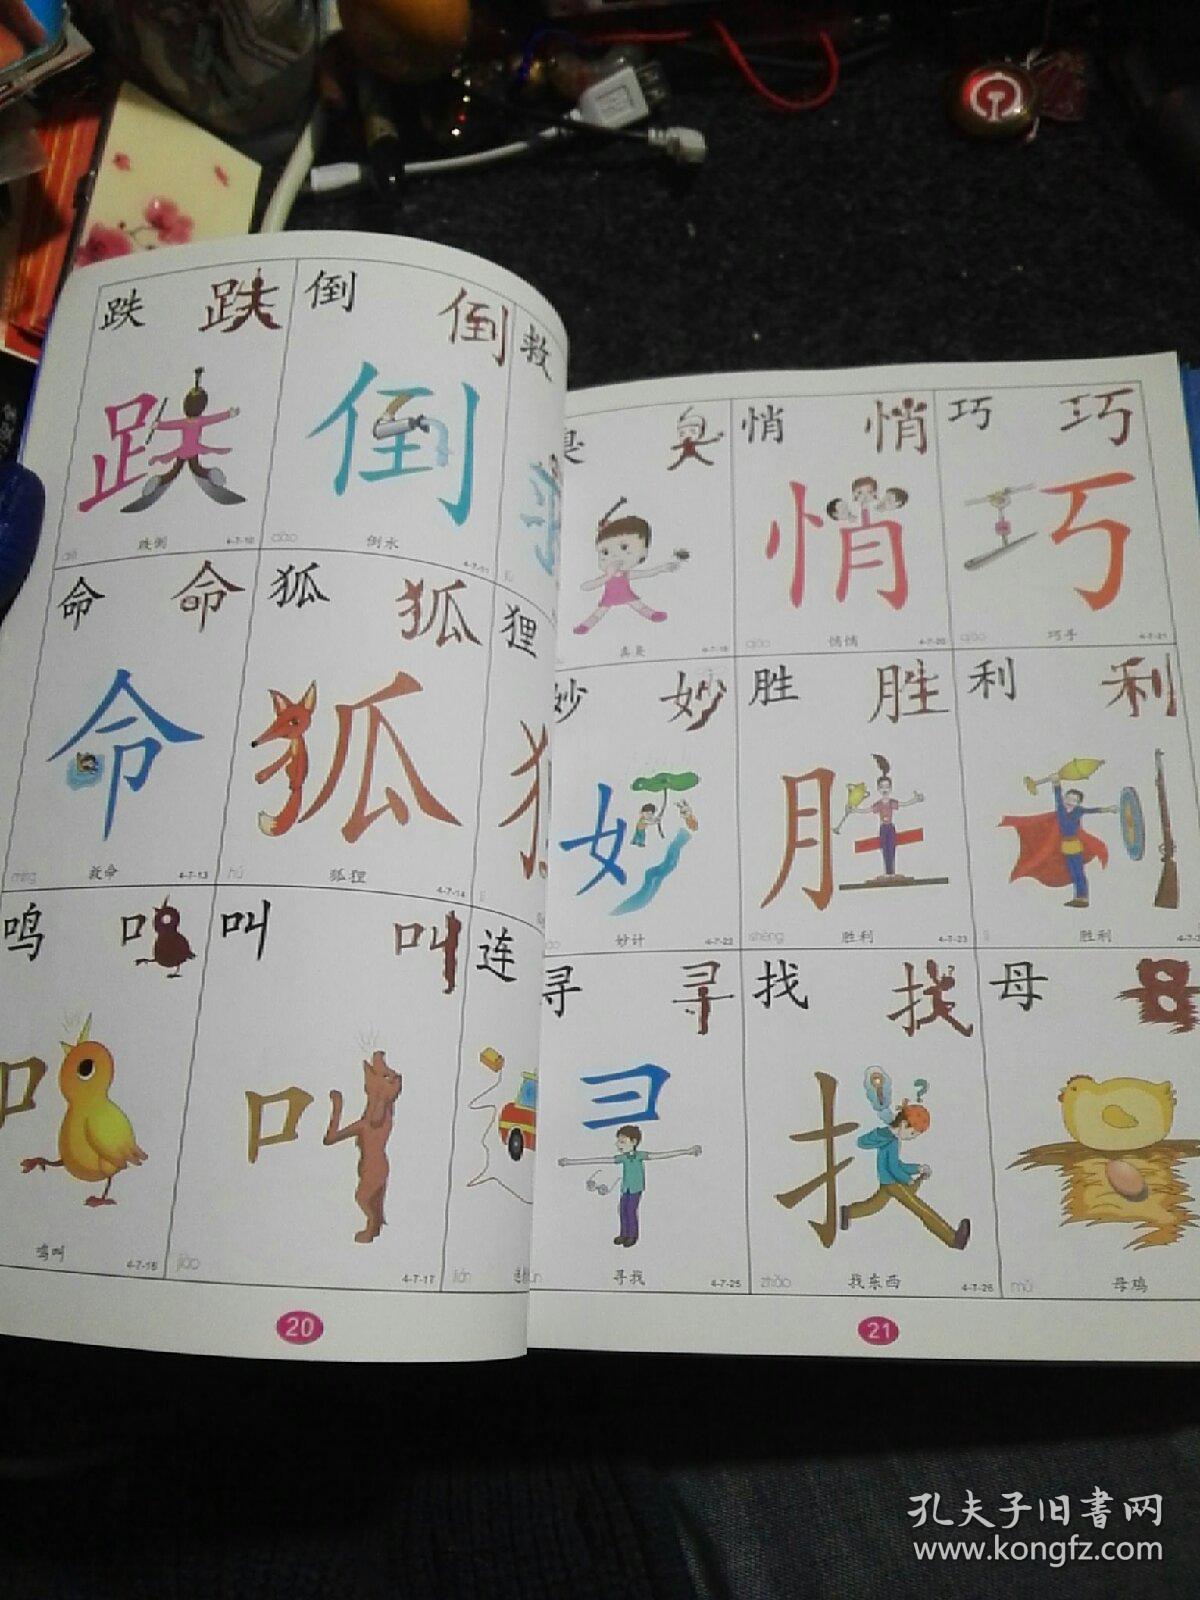 跌 跌
跌
diē 跌倒 4-7-10
倒 倒
倒
dào 倒水 4-7-11
救
命 命
命
mìng 救命 4-7-13
狐 狐
狐
hú 狐狸 4-7-14
狸
鸣
鸣叫 4-7-16
叫 叫
叫
jiào 4-7-17
连
lián
20
臭
4-7-19
悄 悄
悄
qiāo 悄悄 4-7-20
巧 巧
巧
qiǎo 巧手 4-7-21
妙 妙
妙
妙计 4-7-22
胜 胜
胜
shèng 胜利 4-7-23
利 利
利
lì 胜利
寻 寻
寻
寻找 4-7-25
找 找
找
zhǎo 找东西 4-7-26
母 母
mǔ 母鸡
21
孔夫子旧书网
www.kongfz.com